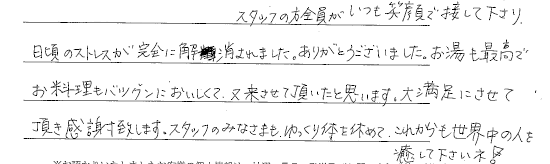 スタッフの方全員がいつも笑顔で接して下さり、
日頃のストレスが完全に解消されました。ありがとうございました。お湯も最高で
お料理もバツグンにおいしくて、又来させて頂いたと思います。大満足にさせて
頂き感謝致します。スタッフのみなさまも、ゆっくり体を休めて、これからも世界中の人を
癒して下さいネ!